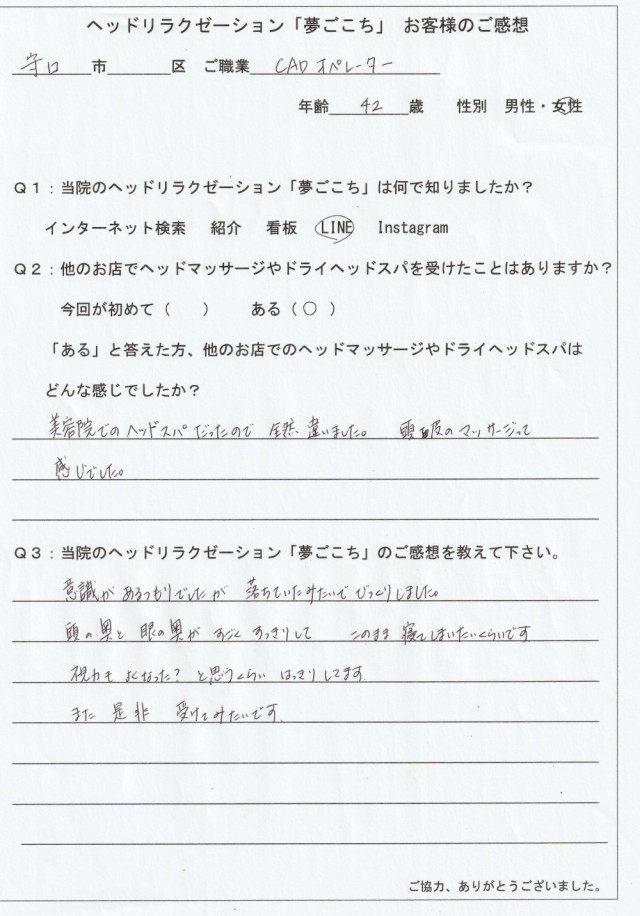 ヘッドリラクゼーション「夢ごこち」 お客様のご感想
守口 市 区 ご職業 CADオペレーター
年齢 42 歳 性別 男性・女性
Q1：当院のヘッドリラクゼーション「夢ごこち」は何で知りましたか？
インターネット検索 紹介 看板 LINE Instagram
Q2：他のお店でヘッドマッサージやドライヘッドスパを受けたことはありますか？
今回が初めて（ ） ある（○）
「ある」と答えた方、他のお店でのヘッドマッサージやドライヘッドスパは
どんな感じでしたか？
美容院でのヘッドスパだったので 全然違いました。 頭皮のマッサージって
感じでした。
Q3：当院のヘッドリラクゼーション「夢ごこち」のご感想を教えて下さい。
意識があるつもりでしたが 落ちていたみたいでびっくりしました。
頭の奥と 眼の奥が すごく すっきりして このまま 寝てしまいたいくらいです
視力も よくなった？ と思うくらい はっきりしてます
また 是非 受けてみたいです。
ご協力、ありがとうございました。